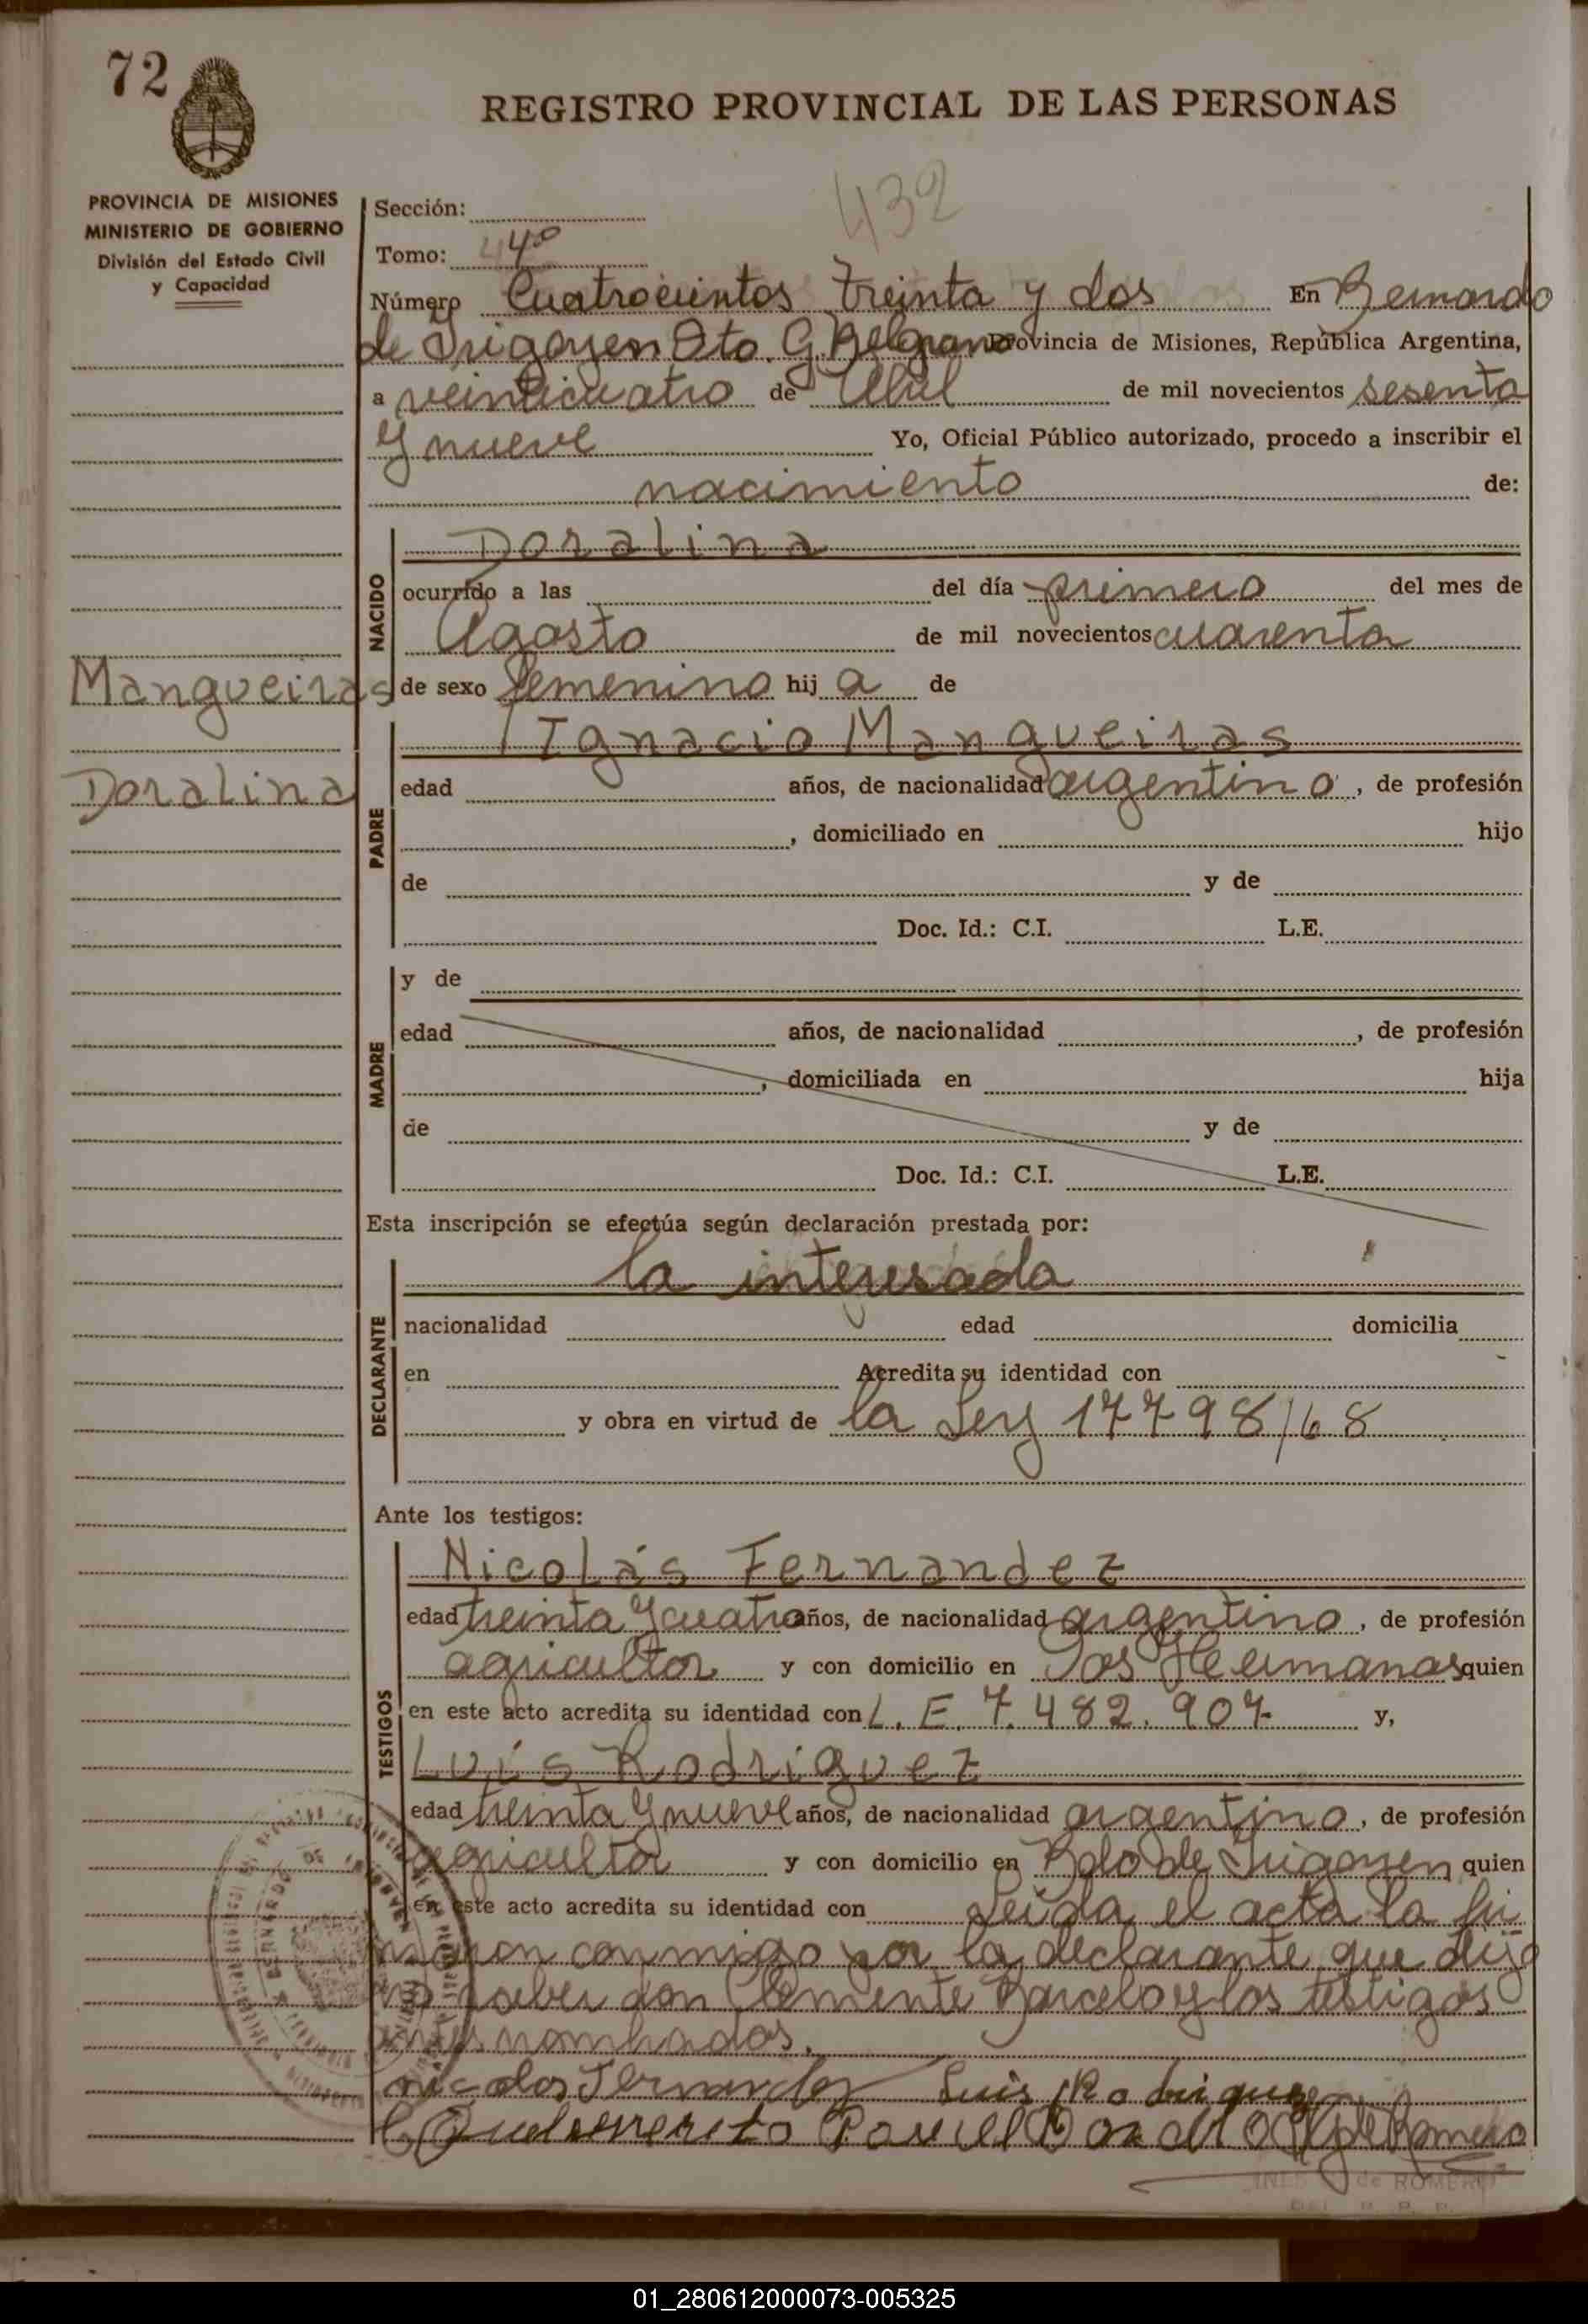 72
REGISTRO PROVINCIAL DE LAS PERSONAS
PROVINCIA DE MISIONES
MINISTERIO DE GOBIERNO
División del Estado Civil
y Capacidad
432
Sección:
Tomo: 4º
Número Cuatrocientos treinta y dos En Bernardo
de Irigoyen Dto. G. Belgrano Provincia de Misiones, República Argentina,
a veinticuatro de Abril de mil novecientos sesenta
y nueve Yo, Oficial Público autorizado, procedo a inscribir el
nacimiento de:
NACIDO
Doralina
ocurrido a las del día primero del mes de
Agosto de mil novecientos cuarenta
Mangueiras
de sexo femenino hij a de
PADRE
Ignacio Mangueiras
Doralina
edad años, de nacionalidad argentino, de profesión
, domiciliado en hijo
de y de
Doc. Id.: C.I. L.E.
MADRE
y de
edad años, de nacionalidad , de profesión
, domiciliada en hija
de y de
Doc. Id.: C.I. L.E.
Esta inscripción se efectúa según declaración prestada por:
DECLARANTE
la interesada
nacionalidad edad domicilia
en Acredita su identidad con
y obra en virtud de la Ley 17798/68
Ante los testigos:
TESTIGOS
Nicolás Fernandez
edad treinta y cuatro años, de nacionalidad argentino, de profesión
agricultor y con domicilio en Dos Hermanas quien
en este acto acredita su identidad con L.E. 7.482.907 y,
Luis Rodriguez
edad treinta y nueve años, de nacionalidad argentino, de profesión
agricultor y con domicilio en Bdo de Irigoyen quien
en este acto acredita su identidad con Leída el acta la fir
maron conmigo por la declarante que dijo
no saber don Clemente Barcelo y los testigos
antes nombrados.
Nicolas Fernandez Luis Rodriguez
de Romero
INES de ROMERO
DEL R. P. P.
01_280612000073-005325